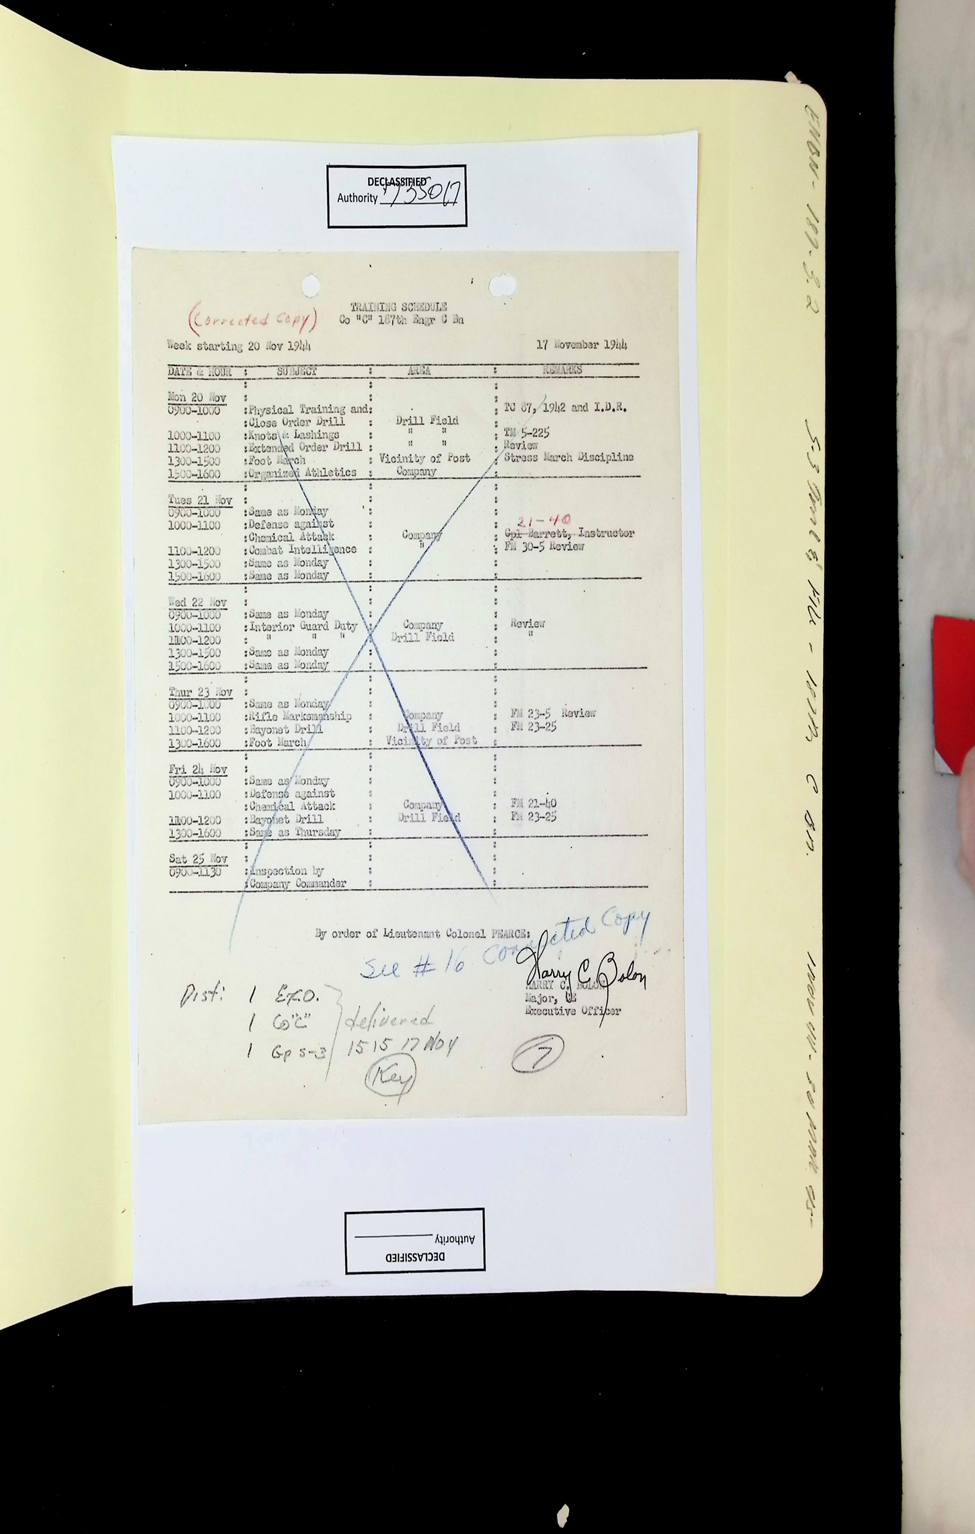 DECLASSIFIED
Authority 735017
(Corrected Copy)
TRAINING SCHEDULE
Co "C" 187th Engr C Bn
Week starting 20 Nov 1944 17 November 1944
DATE & HOUR : SUBJECT : AREA : REMARKS
Mon 20 Nov
0900-1000 :Physical Training and: : TC 87, 1942 and I.D.R.
:Close Order Drill : Drill Field :
1000-1100 :Knots & Lashings : " " : TM 5-225
1100-1200 :Extended Order Drill : " " : Review
1300-1500 :Foot March : Vicinity of Post : Stress March Discipline
1500-1600 :Organized Athletics : Company :
Tues 21 Nov
0900-1000 :Same as Monday
21-40
1000-1100 :Defense against
:Chemical Attack : Company : Cpl Barrett, Instructor
1100-1200 :Combat Intelligence : " : FM 30-5 Review
1300-1500 :Same as Monday
1500-1600 :Same as Monday
Wed 22 Nov
0900-1000 :Same as Monday
1000-1100 :Interior Guard Duty : Company : Review
1100-1200 : " " " : Drill Field : "
1300-1500 :Same as Monday
1500-1600 :Same as Monday
Thur 23 Nov
0900-1000 :Same as Monday
1000-1100 :Rifle Marksmanship : Company : FM 23-5 Review
1100-1200 :Bayonet Drill : Drill Field : FM 23-25
1300-1600 :Foot March : Vicinity of Post :
Fri 24 Nov
0900-1000 :Same as Monday
1000-1100 :Defense against
:Chemical Attack : Company : FM 21-40
1100-1200 :Bayonet Drill : Drill Field : FM 23-25
1300-1600 :Same as Thursday
Sat 25 Nov
0900-1130 :Inspection by
:Company Commander
By order of Lieutenant Colonel PEARCE:
See #16 Corrected Copy
Harry C Bolon
HARRY C. BOLON
Major, CE
Executive Officer
Dist: 1 Ex.O.
1 Co "C" delivered
1 Gp S-3 1515 17 Nov
Key
7
DECLASSIFIED
Authority
ENBN-187-3.2
S-3 File - 187th C Bn.